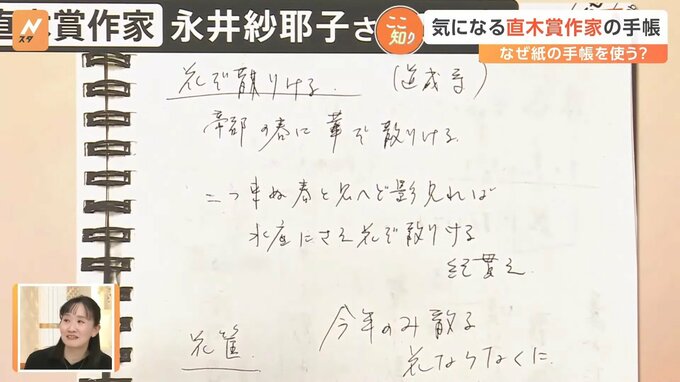 Nスタ
直木賞作家 永井紗耶子さ
ここ知り
気になる直木賞作家の手帳
なぜ紙の手帳を使う?
花ぞ散りける (道成寺)
帝都の春に華ぞ散りける
二つ来ぬ春と思へど影見れば
水底にさえ花ぞ散りける
紀貫之
花筐
今年のみ散る
花ならなくに